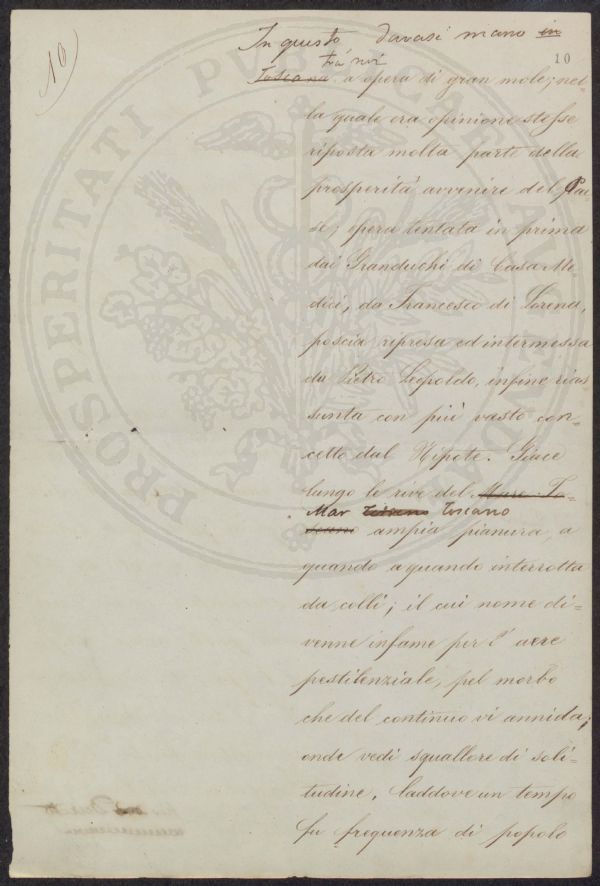 10
In questo davasi mano in
10
tra noi
Toscana a opera di gran mole; nel-
la quale era opinione stesse
riposta molta parte della
prosperità avvenire del Pae
se; opera tentata in prima
dai Granduchi di Casa Me-
dici, da Francesco di Lorena,
poscia ripresa ed intermessa
da Pietro Leopoldo, infine rias
sunta con più vasto con-
cetto dal Nipote. Giace
lungo le rive del Mare To-
Mar Toscano
scano ampia pianura, a
quando a quando interrotta
da colli; il cui nome di-
venne infame per l'aere
pestilenziale, pel morbo
che del continuo vi annida;
onde vedi squallore di soli-
tudine, laddove un tempo
fu frequenza di popolo
PROSPERITATI PUBLICAE AUGENDAE